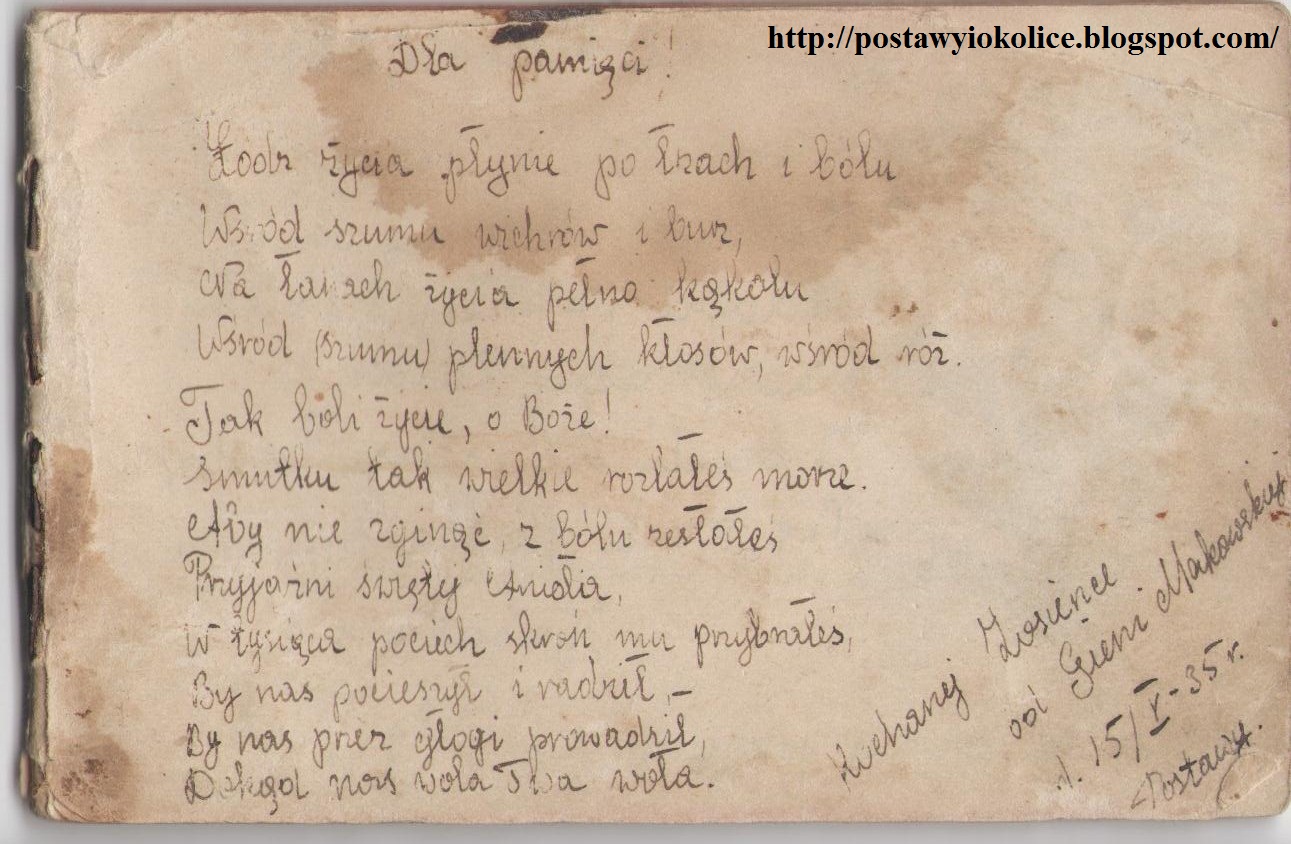 http://postawyiokolice.blogspot.com/
Dla pamięci!
Łódź życia płynie po łzach i bólu
Wśród szumu wichrów i burz,
Na łanach życia pełno kąkolu
Wśród (szumu) plennych kłosów, wśród róż.
Tak boli życie, o Boże!
Smutku tak wielkie rozlałeś morze.
Aby nie zginąć, z bólu zesłałeś
Przyjaźni świętej Anioła,
W tysiąca pociech skroń mu przybrałeś,
By nas pocieszył i radził, –
By nas przez głogi prowadził,
Dokąd nas woła Twa wola.
Kochanej Zosience
od Gieni Makowskiej
d. 15/V-35 r.
Postawy.